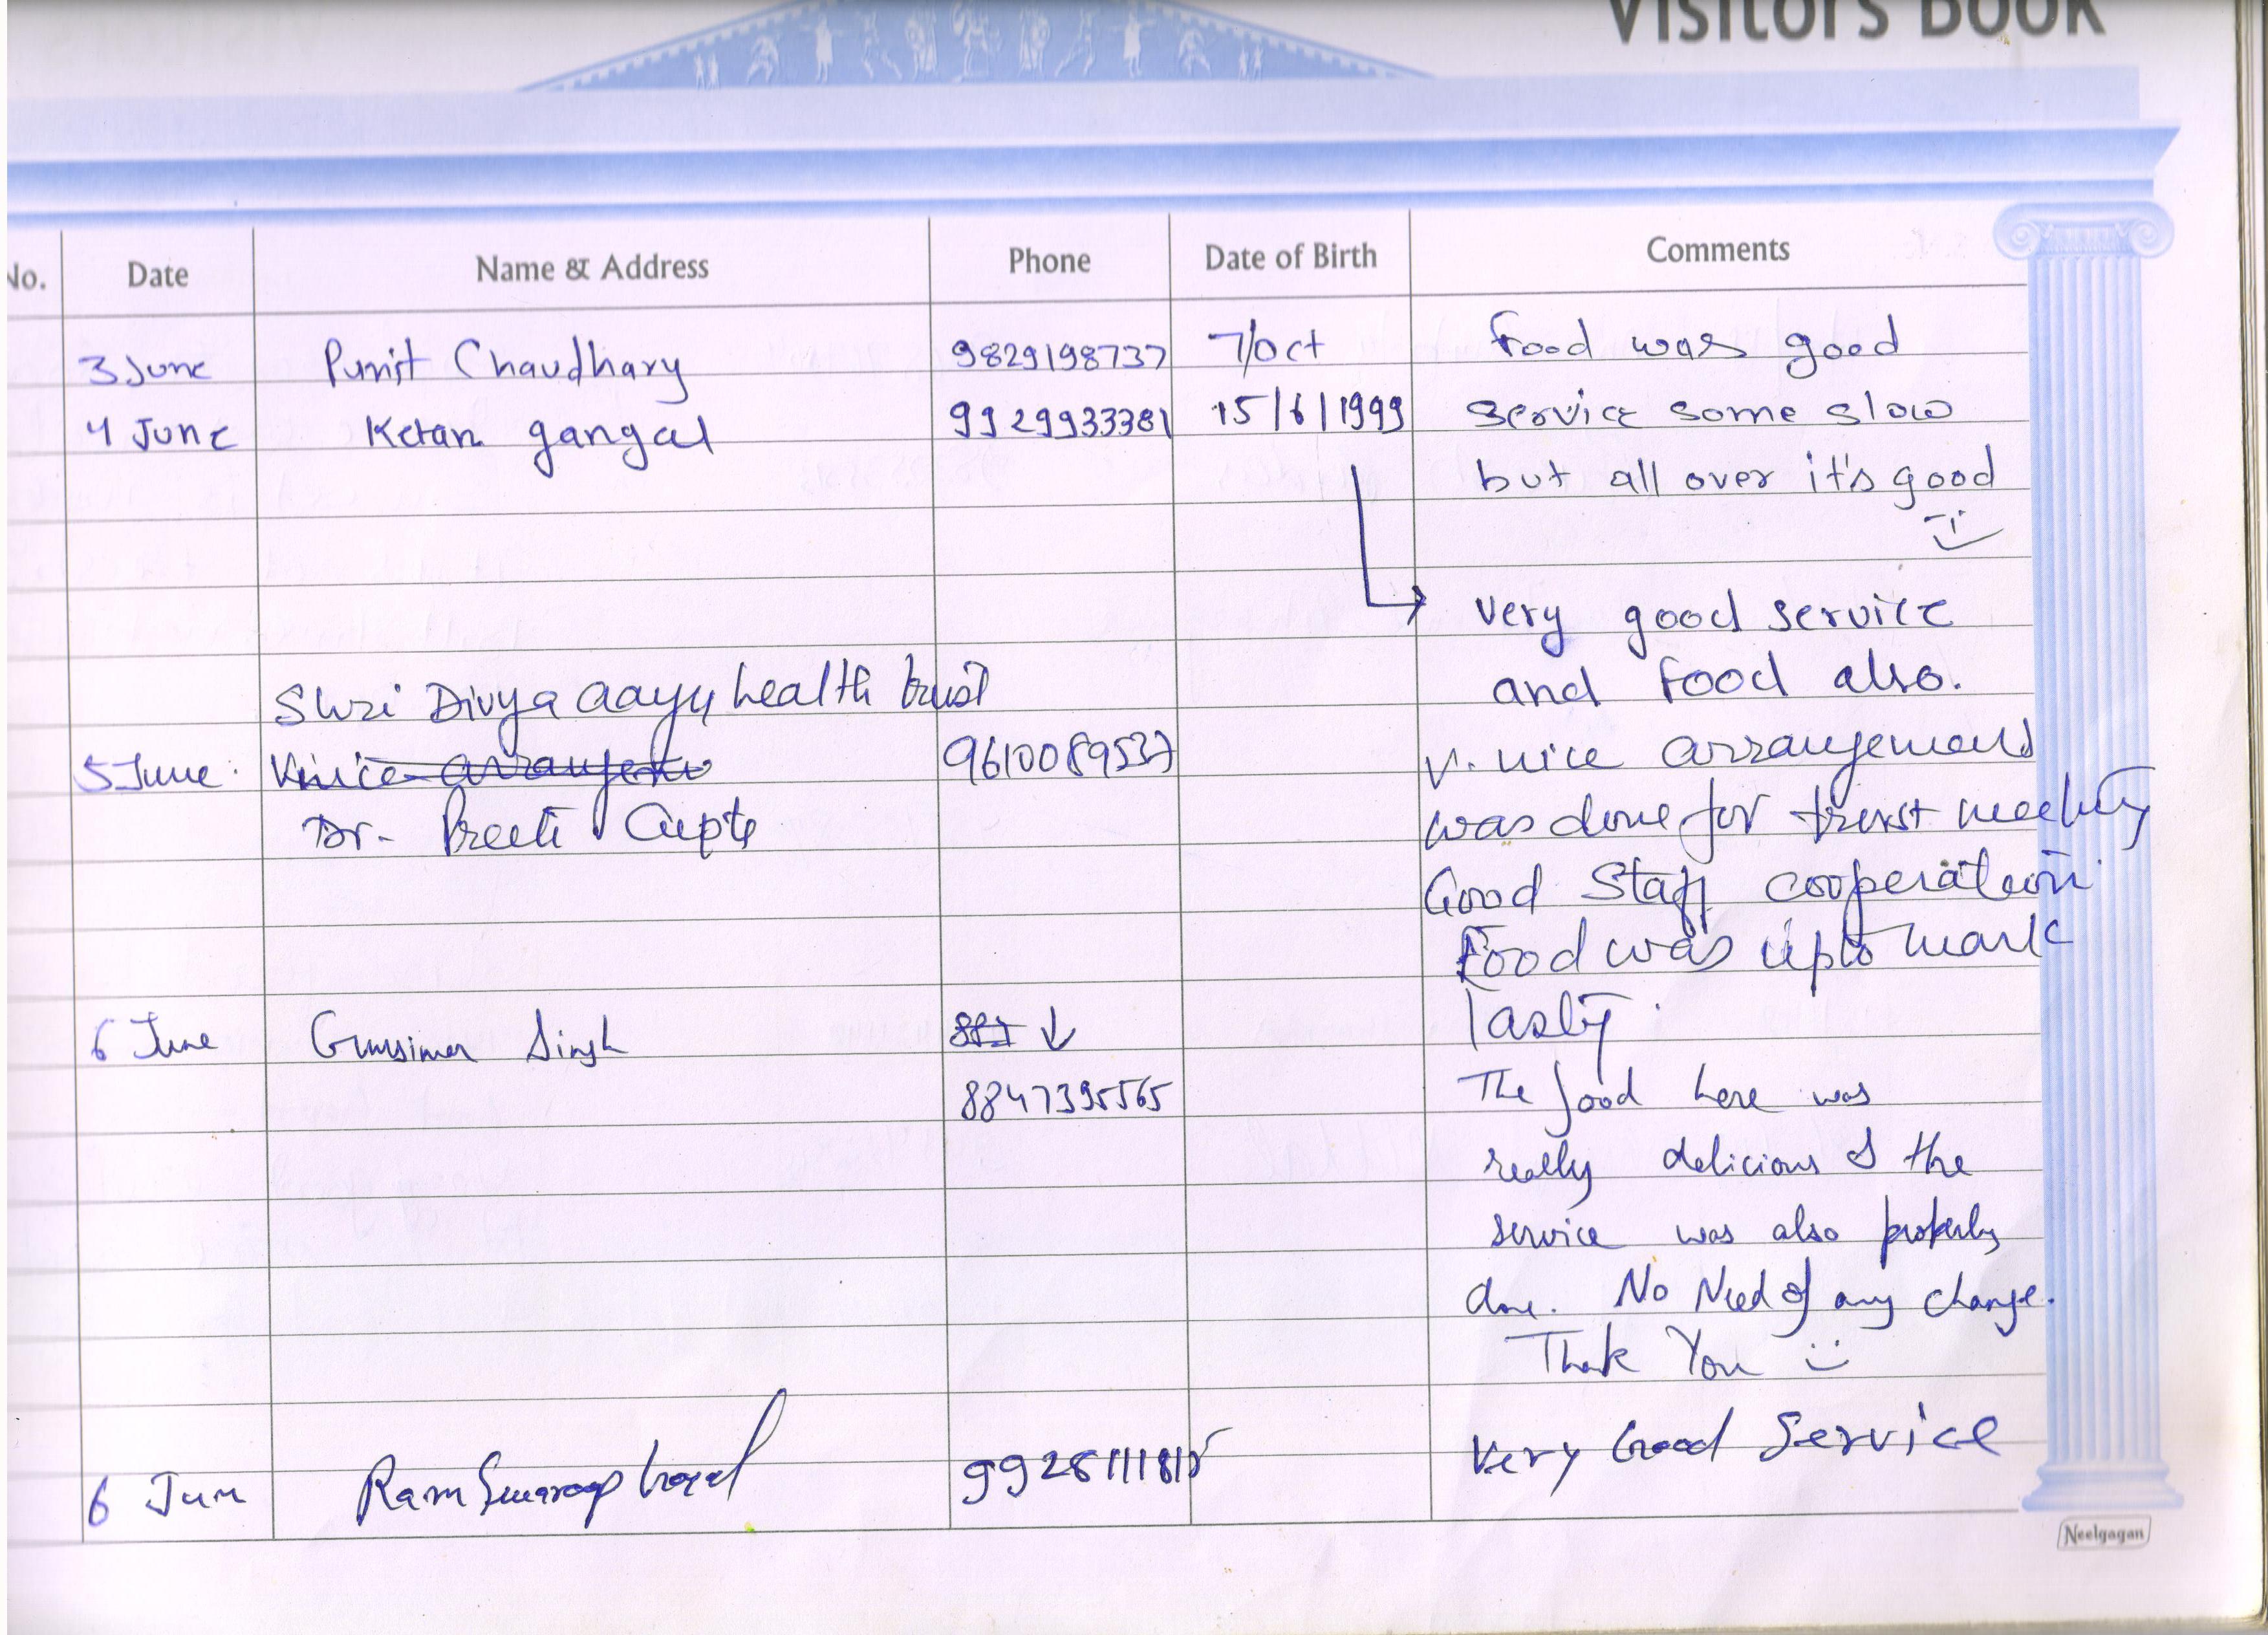 VISITORS BOOK
No. Date Name & Address Phone Date of Birth Comments
3 June Punit Chaudhary 9829198737 7/Oct Food was good
4 June Ketan gangal 9929933381 15/6/1999 service some slow
but all over it's good
very good service
and Food also.
Shri Divya aayu health trust
5 June. 9610089537 V. nice arrangement
Dr. Preeti Gupta was done for trust meeting
Good Staff cooperation.
Food was upto mark
Tasty.
6 June Gursimer Singh
8847395565 The food here was
really delicious & the
service was also properly
done. No Need of any change.
Thank You
6 Jun Ram Swaroop Very Good Service
Neelgagan